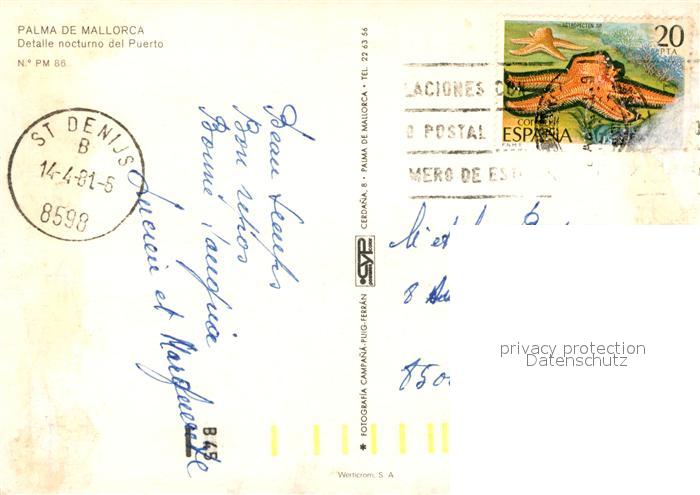 PALMA DE MALLORCA
Detalle nocturno del Puerto
N.º PM 86
ST DENIJS
B
14-4-81-6
8598
Beau temps
Bon repos
Bonne
Lucien et Marguerite
B 45
✷ FOTOGRAFÍA CAMPAÑÁ-PUIG-FERRÁN
CYP
CERDAÑA, 8 - PALMA DE MALLORCA - TEL. 22 63 56
Werticrom, S. A
ASTROPECTEN SP
20
PTA
correos
ESPAÑA
F.N.M.T.
LACIONES CON
O POSTAL
MERO DE
M et
8
850
privacy protection
Datenschutz